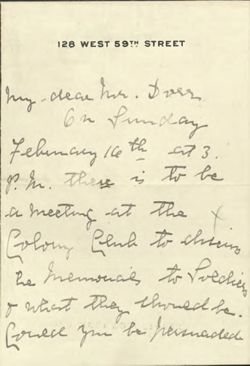 128 WEST 59TH STREET
My dear Mr. Dorr.
On Sunday
February 16th at 3.
P.M. there is to be
a meeting at the
Colony Club to discuss
the Memorials to Soldiers
& what they should be.
Could you be persuaded